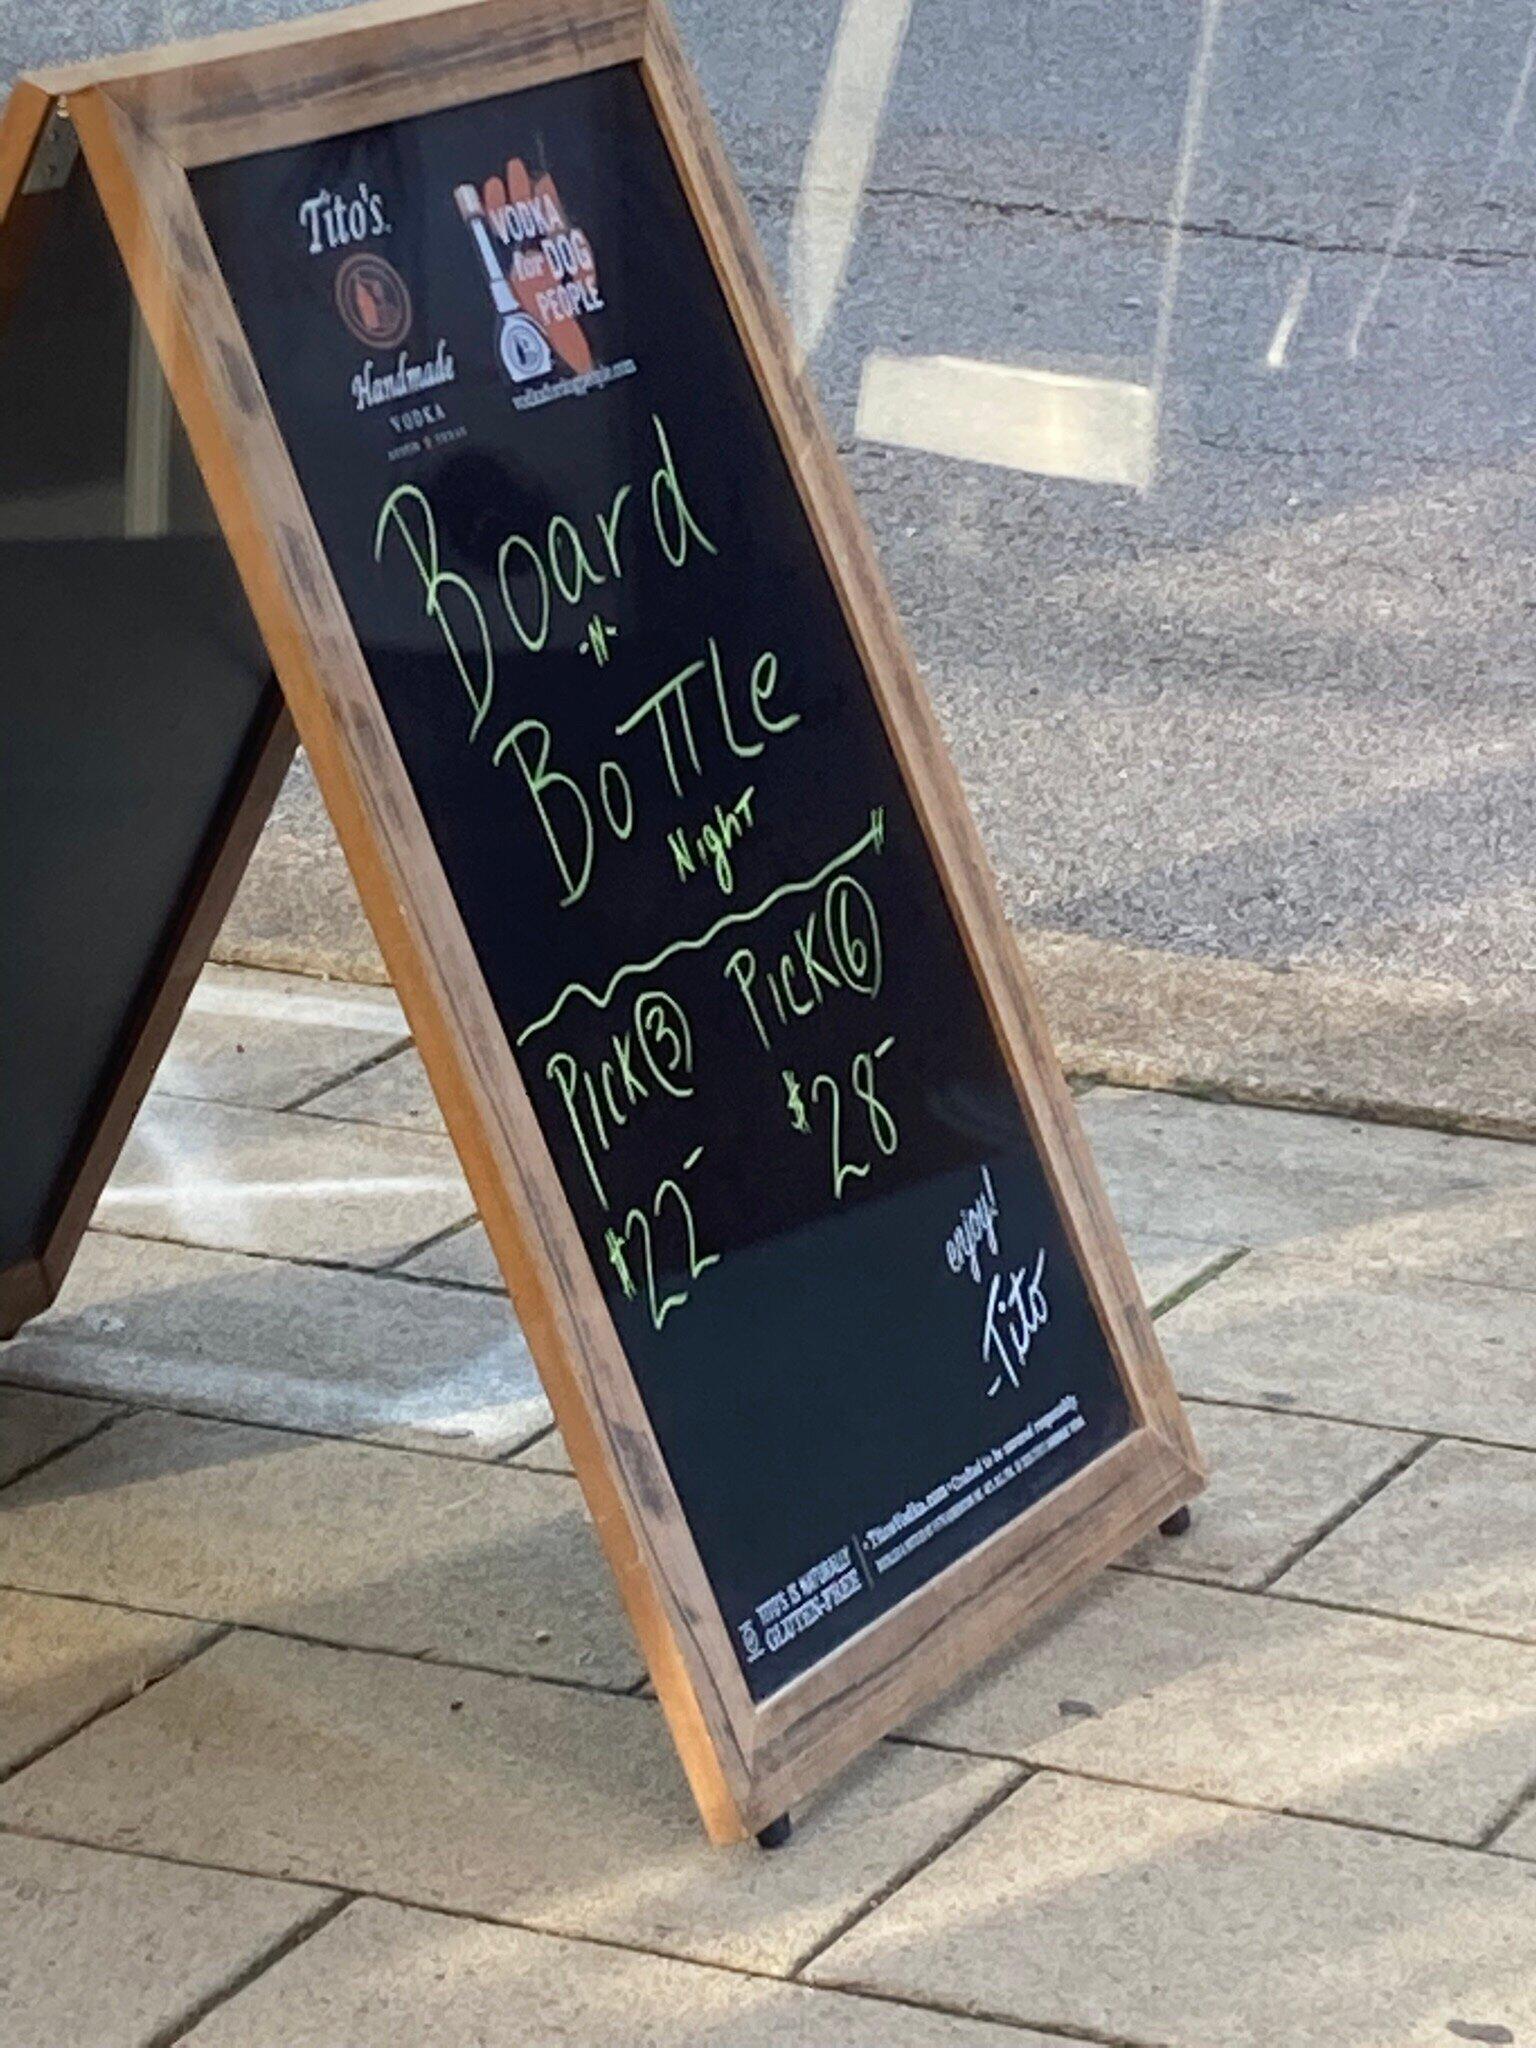 Tito's
Handmade
VODKA
AUSTIN TEXAS
VODKA
for DOG
PEOPLE
vodkafordogpeople.com
Board
-N-
BoTTLe
NighT
PicK 3
PicK 6
$22-
$28-
enjoy!
-Tito
TITO'S IS NATURALLY
GLUTEN-FREE
TitosVodka.com • Crafted to be savored responsibly